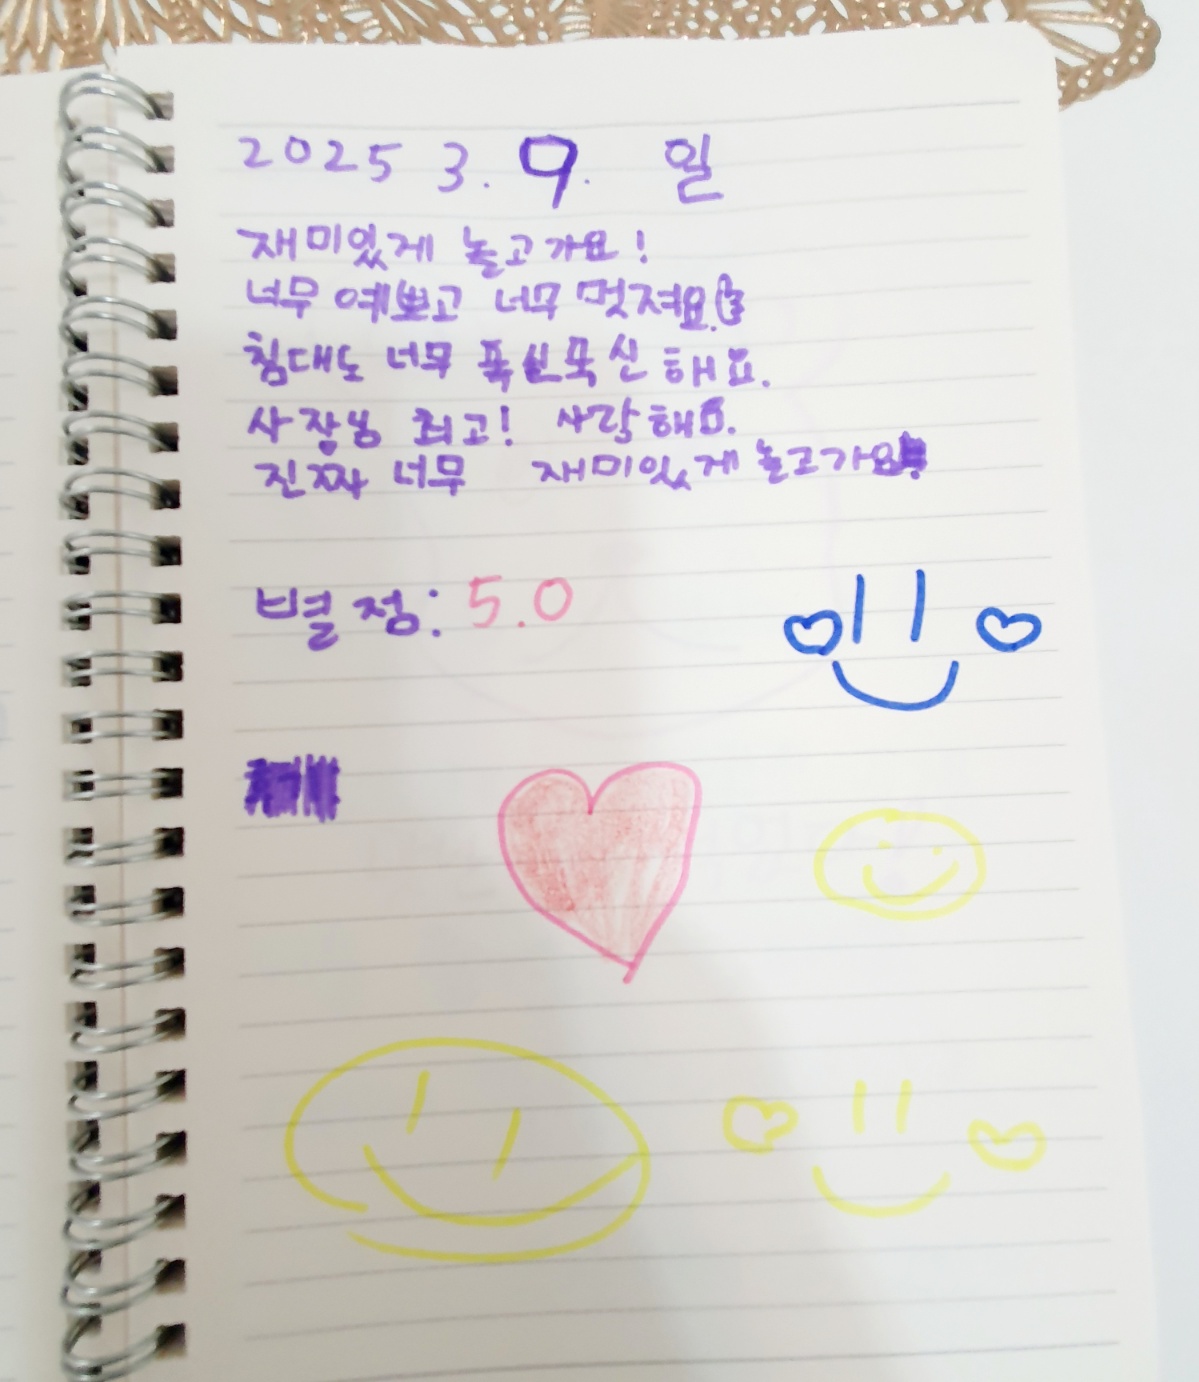 2025 3. 9. 일
재미있게 놀고가요!
너무 예쁘고 너무 멋져요.
침대도 너무 푹신푹신 해요.
사장님 최고! 사랑해요.
진짜 너무 재미있게 놀고가요!
별점: 5.0